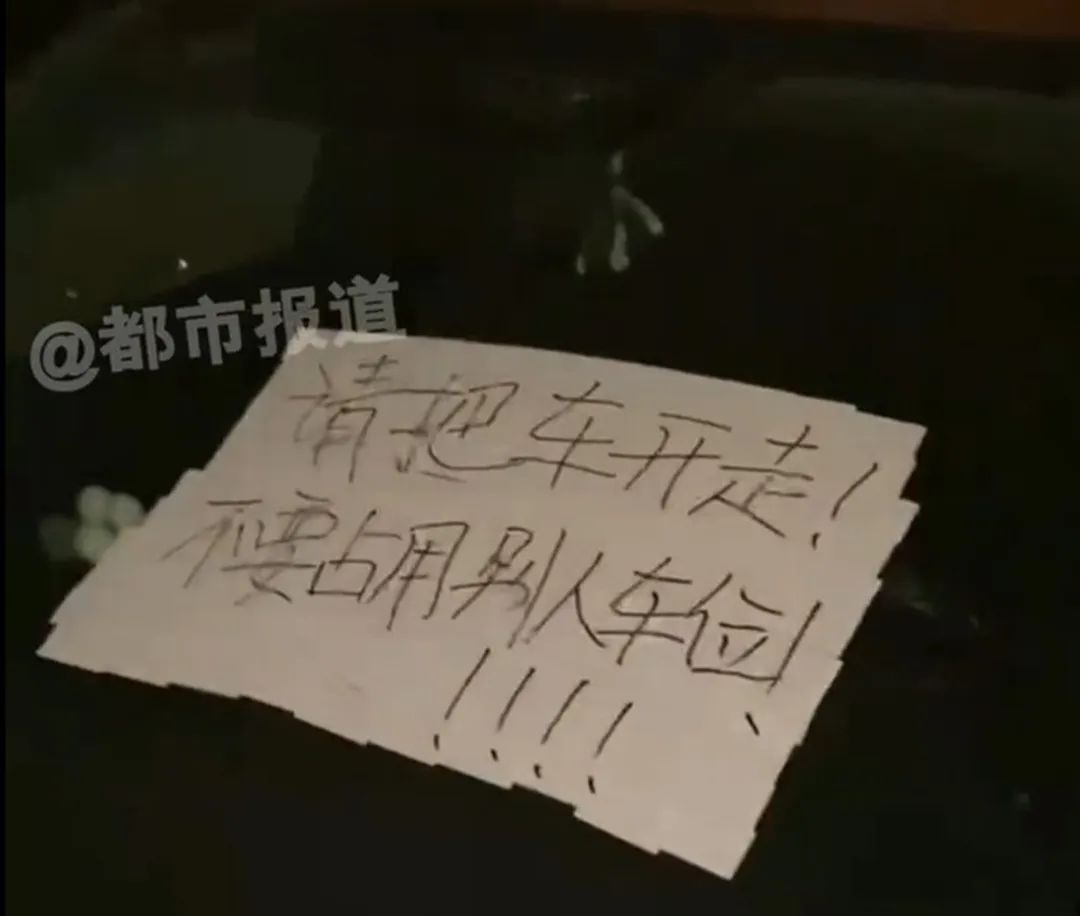 @都市报道
请把车开走!
不要占用别人车位!
!!!!